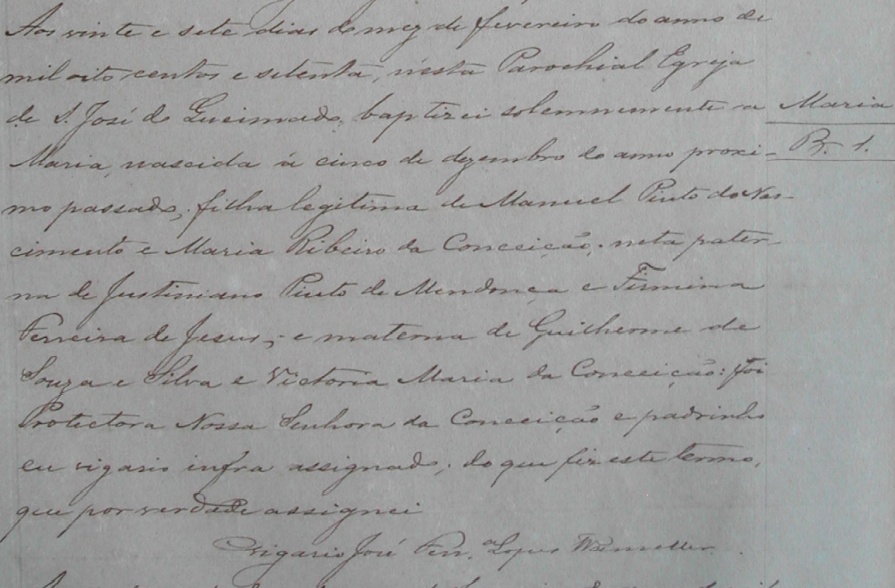 Aos vinte e sete dias do mez de fevereiro do anno de
mil oito centos e setenta, n'esta Parochial Egreja
de S. José do Queimado, baptizei solemnemente a
Maria
B. 1.
Maria, nascida á cinco de dezembro do anno proxi-
mo passado, filha legitima de Manuel Pinto do Nas-
cimento e Maria Ribeiro da Conceição; neta pater-
na de Justiniano Pinto de Mendonça e Firmina
Ferreira de Jesus; e materna de Guilherme de
Souza e Silva e Victoria Maria da Conceição: foi
Protectora Nossa Senhora da Conceição e padrinho
eu vigario infra assignado; do que fiz este termo,
que por verdade assignei
Vigario José Ferr.ª Lopes